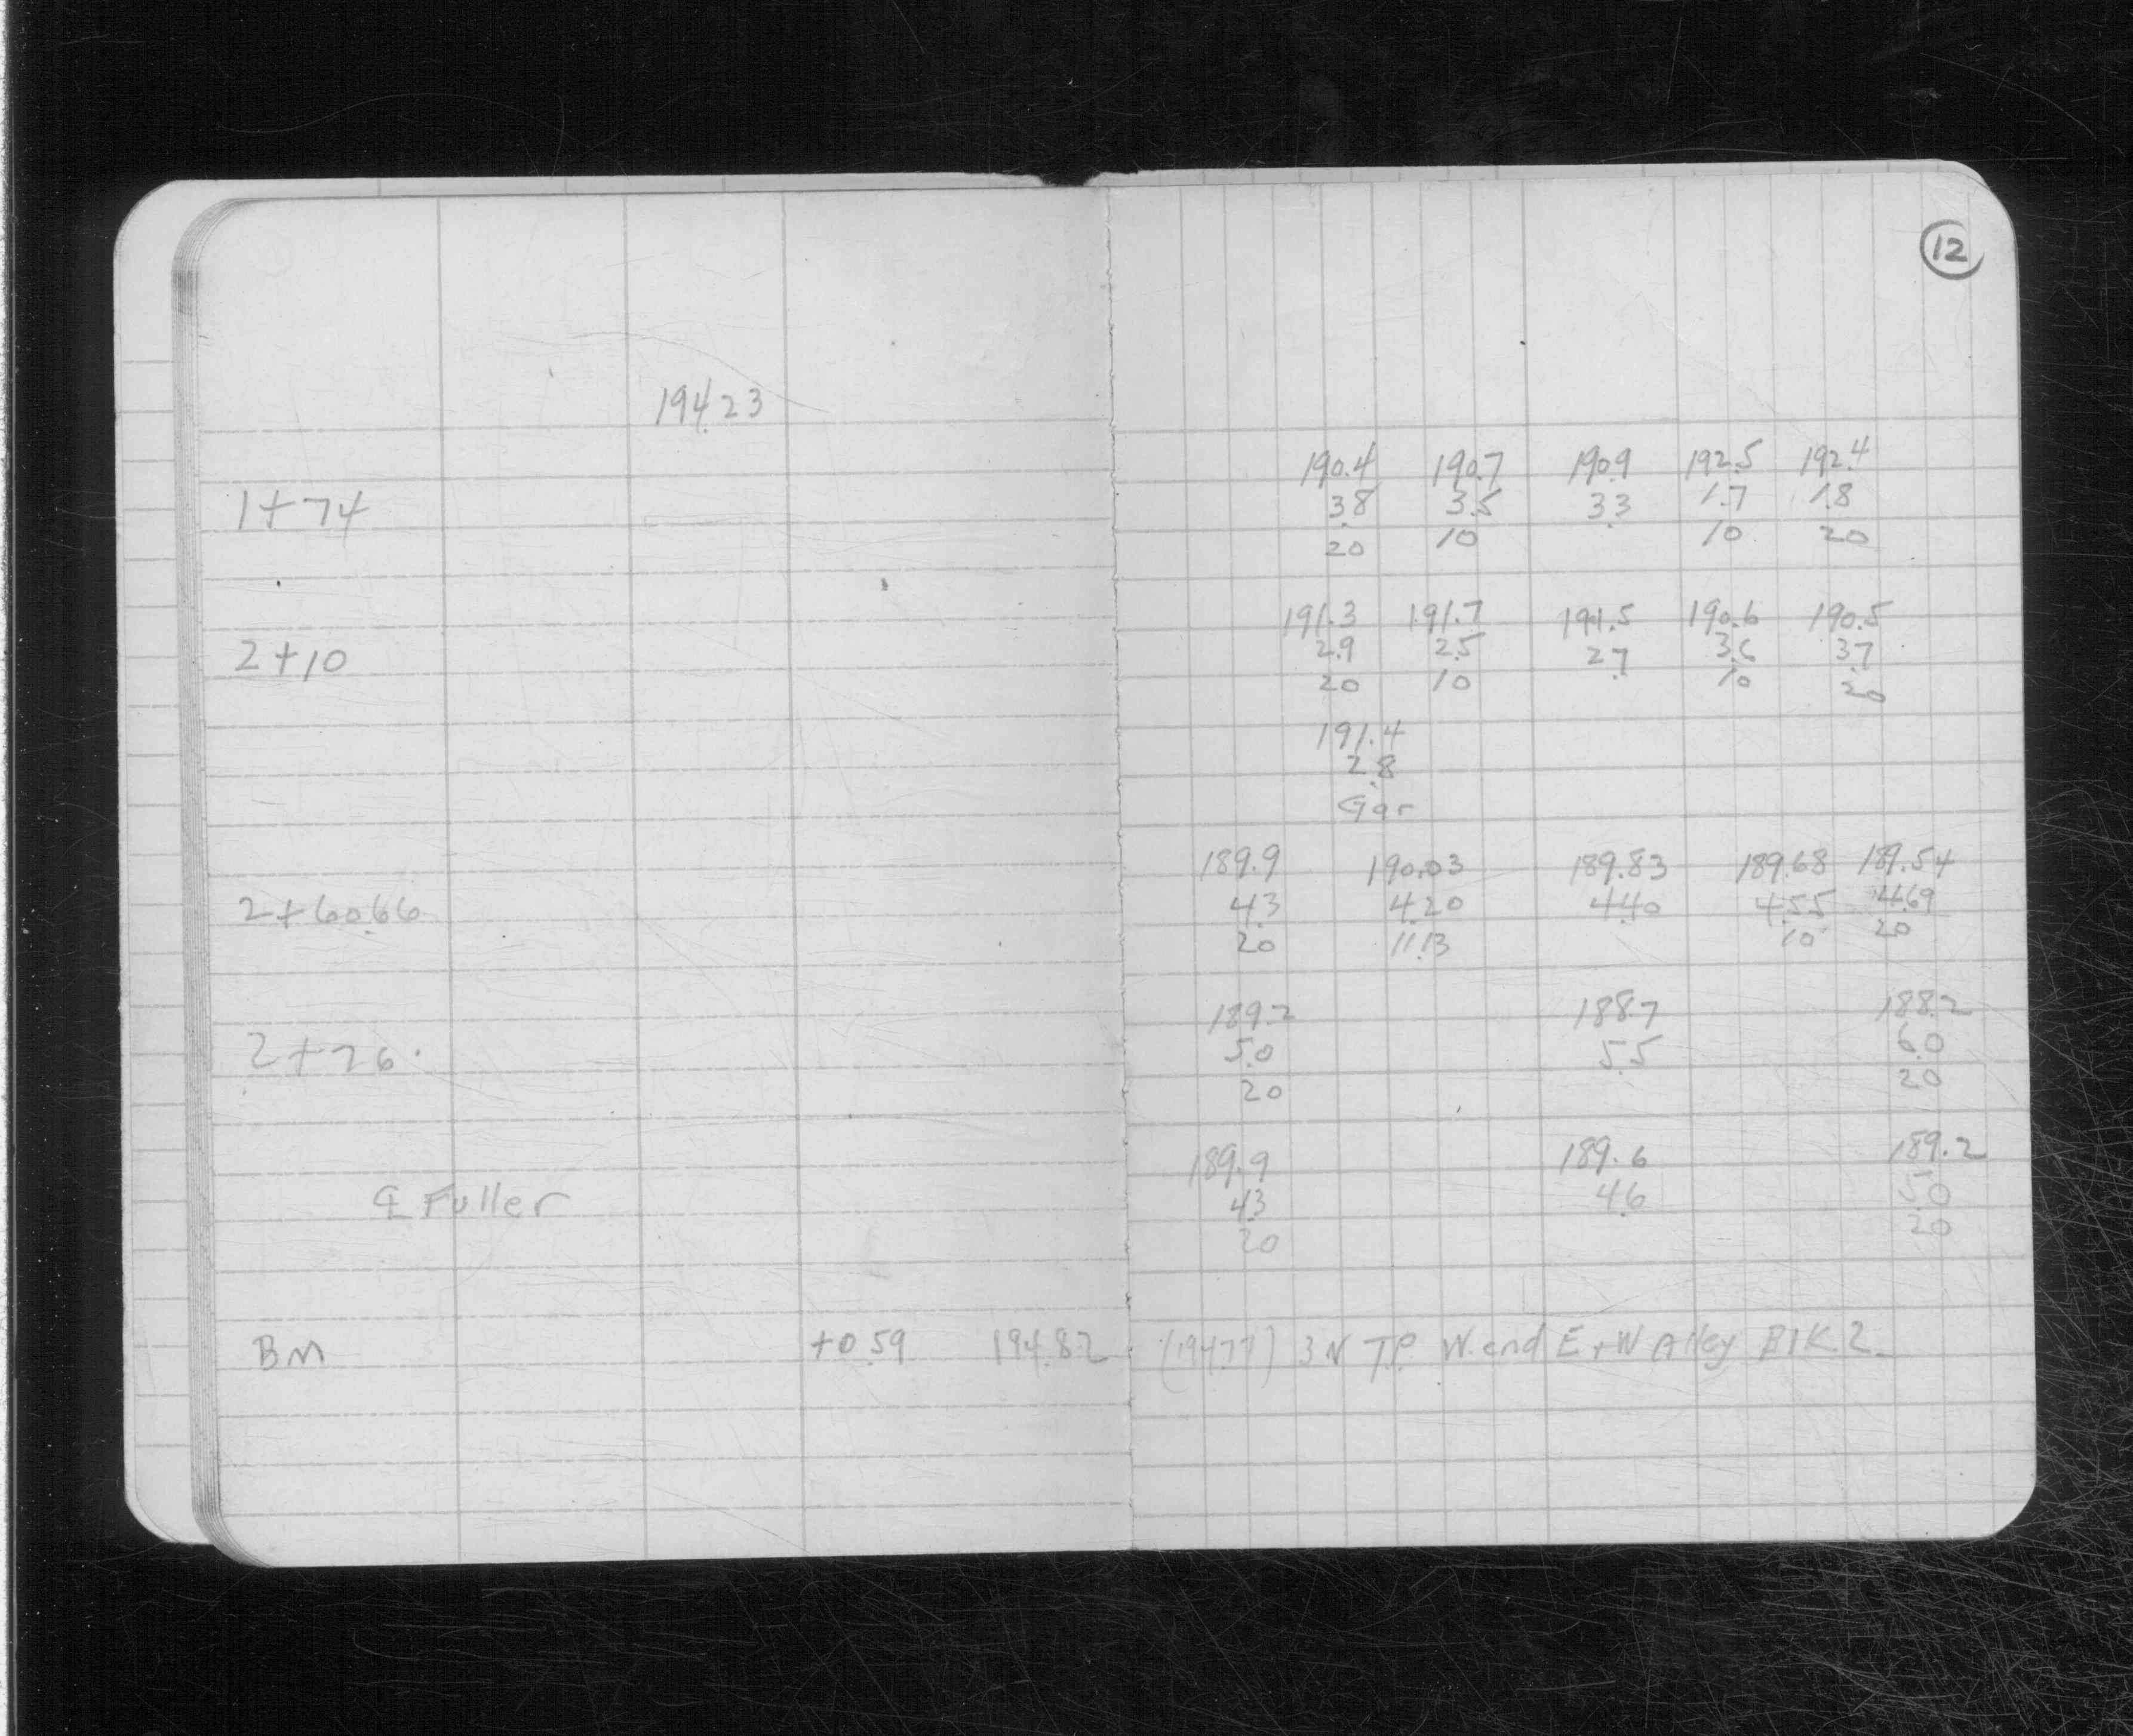 12
194.23
190.4 190.7 190.9 192.5 192.4
1+74 3.8 3.5 3.3 1.7 1.8
20 10 10 20
191.3 191.7 191.5 190.6 190.5
2+10 2.9 2.5 2.7 3.6 3.7
20 10 10 20
191.4
2.8
Gar
189.9 190.03 189.83 189.68 189.54
2+60.66 4.3 4.20 4.40 4.55 4.69
20 11.13 10 20
189.2 188.7 188.2
2+76 5.0 5.5 6.0
20 20
189.9 189.6 189.2
℄ Fuller 4.3 4.6 5.0
20 20
BM +0.59 194.82 (194.77) 3 N T.P. W. end E+W Alley Blk 2